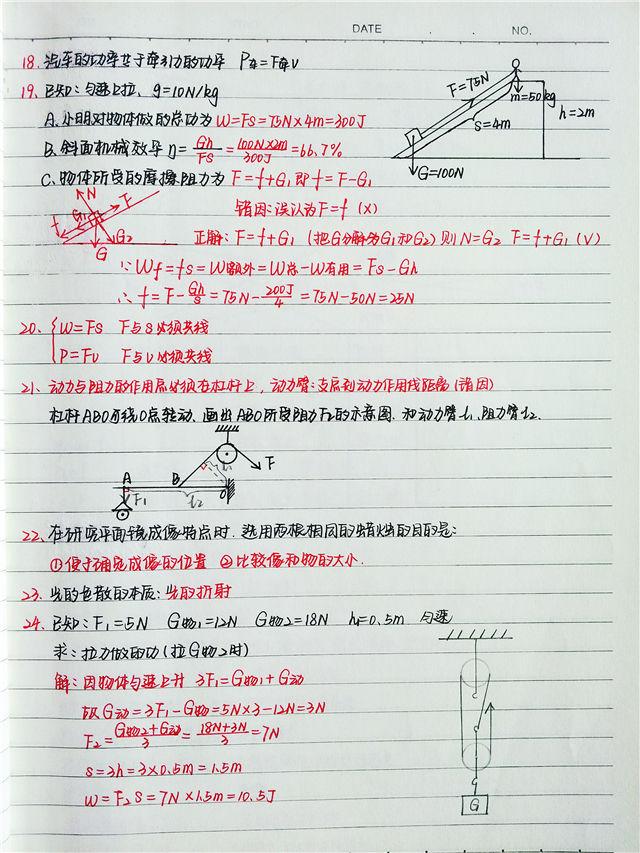 DATE . . NO.
18. 汽车的功率等于牵引力的功率 P车=F牵v
19. 已知:匀速上拉、g=10N/kg
F=75N
m=50kg
h=2m
s=4m
G=100N
A.小明对物体做的总功为W=FS=75N×4m=300J
B.斜面机械效率η=Gh/FS=100N×2m/300J=66.7%
C.物体所受的摩擦阻力为 F=f+G₁即f=F-G₁
错因:误认为F=f (×)
N F G₁ f G₂ G
正解:F=f+G₁ (把G分解为G₁和G₂) 则N=G₂ F=f+G₁(√)
∵Wf=fs=W额外=W总-W有用=Fs-Gh
∴f=F-Gh/s=75N-200J/4=75N-50N=25N
20、{W=Fs F与s必须共线
P=Fv F与v必须共线
21、动力与阻力的作用点必须在杠杆上,动力臂:支点到动力作用线距离(错因)
杠杆ABO可绕O点转动、画出ABO所受阻力F₂的示意图、和动力臂l₁、阻力臂l₂.
A B O F F₁ l₁ l₂
22、在研究平面镜成像特点时.选用两根相同的蜡烛的目的是:
①便于确定成像的位置 ②比较像和物的大小.
23、光的色散的本质:光的折射
24、已知:F₁=5N G物₁=12N G物2=18N h=0.5m 匀速
求:拉力做的功(拉G物2时)
解:因物体匀速上升 3F₁=G物₁+G动
故G动=3F₁-G物=5N×3-12N=3N
F₂=G物2+G动/3=18N+3N/3=7N
s=3h=3×0.5m=1.5m
W=F₂s=7N×1.5m=10.5J
G